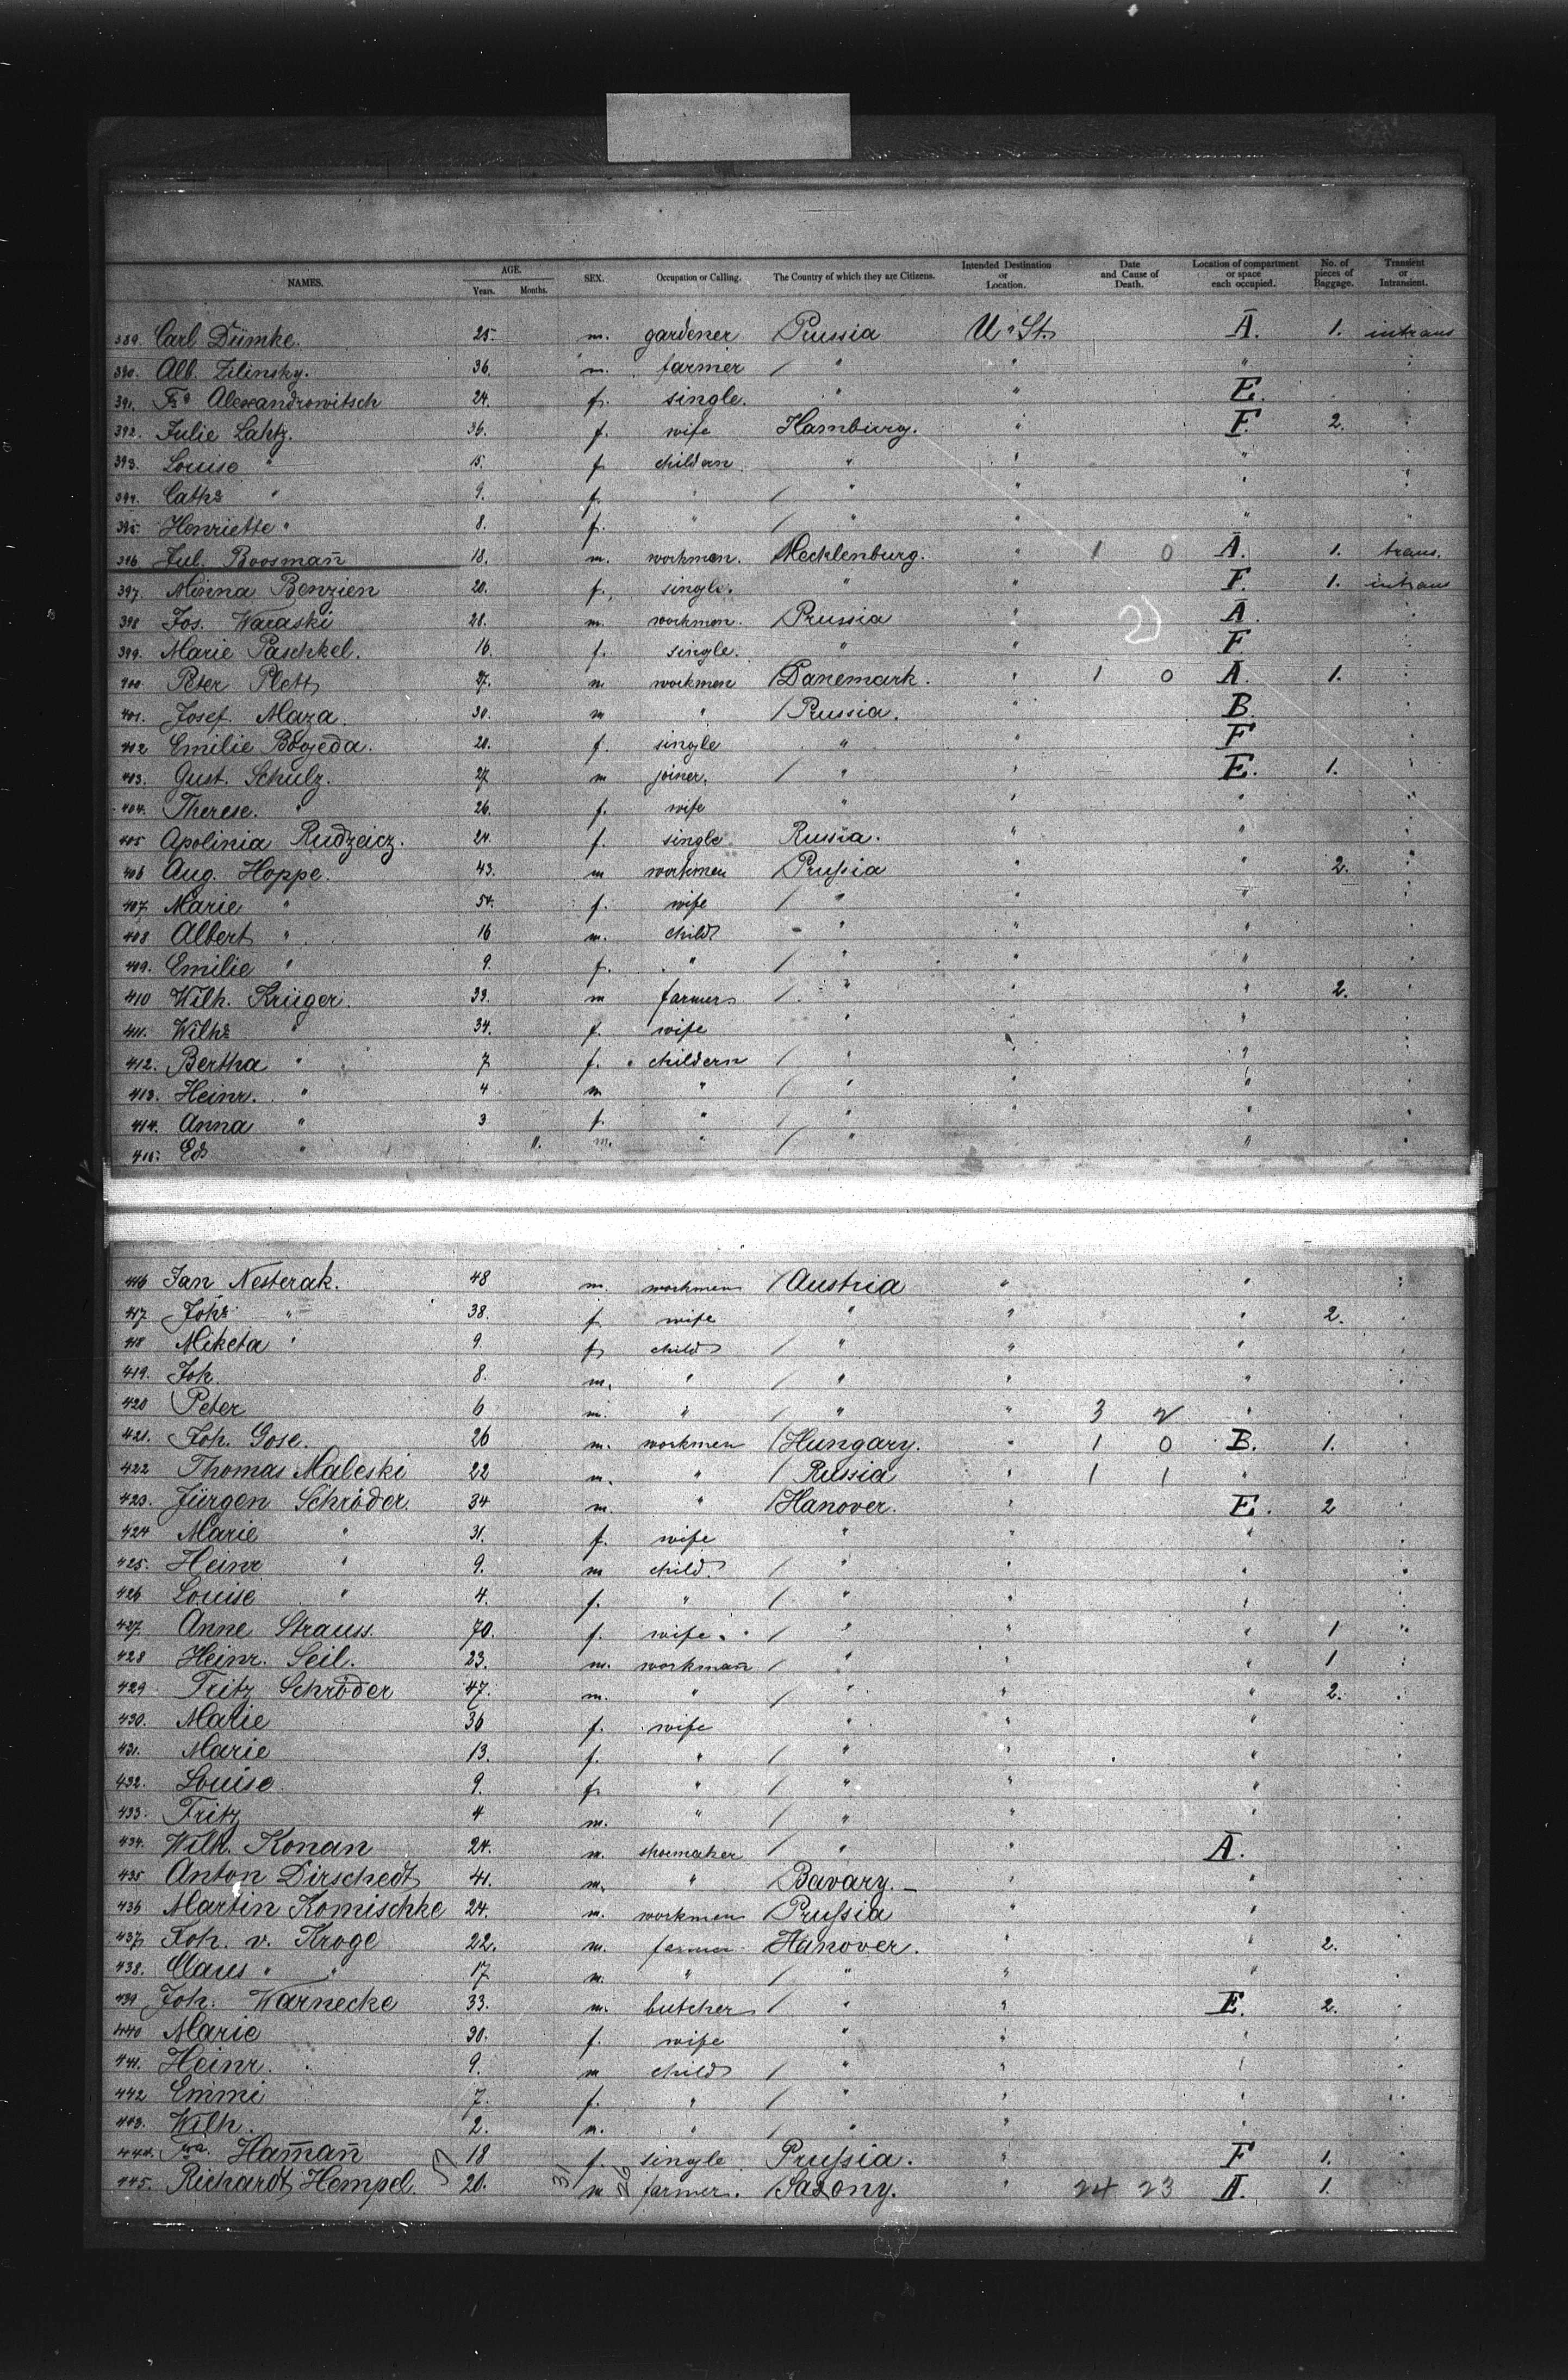 NAMES. AGE. Years. Months. SEX. Occupation or Calling. The Country of which they are Citizens. Intended Destination or Location. Date and Cause of Death. Location of compartment or space each occupied. No. of pieces of Baggage. Transient or Intransient.
389. Carl Dümke. 25. m. gardener Prussia U. St. A. 1. intrans
390. Alb. Zilinsky. 36. m. farmer / " " " "
391. Fra Alexandrowitsch 24. f. single. " " E. "
392. Julie Lahtz. 36. f. wife Hamburg. " F. 2. "
393. Louise " 15. f. childern " " " "
394. Caths " 9. f. " / " " " "
395. Henriette " 8. f. " / " " " "
396. Jul. Boosmañ 18. m. workmen. Mecklenburg. " 1 0 A. 1. trans.
397. Minna Benzien 20. f. single. " " F. 1. intrans
398 Jos. Waraski 28. m. workmen. Prussia " 2) A. "
399. Marie Paschkel. 16. f. single. " " F "
400. Peter Plett 27. m workmen / Danemark. " 1 0 A. 1. "
401. Josef. Maza. 30. m " / Prussia. " B. "
402 Emilie Boojeda. 20. f. single " " F "
403. Gust. Schulz. 27 m joiner. / " " E. 1. "
404. Therese. " 26. f. wife " " " "
405 Apolinia Rudzeicz. 24. f. single Russia. " " "
406 Aug. Hoppe. 43. m workmen Prussia " " 2. "
407. Marie " 54. f. wife / " " " "
408 Albert " 16 m. child " " " "
409. Emilie " 9. f. " / " " " "
410 Wilh. Krüger. 33. m farmers / " " " 2. "
411. Wilhe " 34. f. wife " " " "
412. Bertha " 7 f. childern / " " " "
413. Heinr. " 4 m " / " " " "
414. Anna " 3 f. " / " " " "
415. Ed " 11. m. " / " " "
416 Jan Nesterak. 48 m. workmen / Austria " " "
417 Johe " 38. f. wife " " " 2. "
418 Miketa " 9. f. child / " " " "
419. Joh 8. m. " / " " " "
420 Peter 6 m. " / " " 3 2 " "
421. Joh. Gose. 26 m. workmen / Hungary. " 1 0 B. 1. "
422 Thomas Maleski 22 m. " / Russia " 1 1 " "
423. Jürgen Schröder. 34 m. " / Hanover. " E. 2 "
424 Marie " 31. f. wife " " " "
425. Heinr " 9. m child. / " " " "
426 Louise " 4. f. " / " " " "
427. Anne Strauss. 70. f. wife. / " " " 1 "
428 Heinr. Seil. 23. m. workmañ / " " " 1 "
429 Fritz Schröder 47. m. " / " " " 2. "
430. Marie 36 f. wife " " " "
431. Marie 13. f. " / " " " "
432. Louise. 9. f. " / " " " "
433. Fritz 4 m. " / " " " "
434. Wilh. Konan 24. m. shoemaker / " " A. "
435 Anton Dirschedt 41. m. " Bavary. – " " "
436 Martin Komischke 24. m. workmen Prussia " " "
437. Joh. v. Kroge 22. m. farmer Hanover. " " 2. "
438. Claus " " 17. m. " / " " " "
439 Joh. Warnecke 33. m. butcher / " " E. 2. "
440 Marie 30. f. wife " " " "
441. Heinr. " 9. m child / " " " "
442 Emmi 7. f. " / " " " "
443. Wilh. 2. m. " / " " " "
444. Fra. Hamañ 18 f. single Prussia. " F 1. "
445. Richardt Hempel. 57 20. 31 m 26 farmer. / Saxony. " 24 23 A. 1. "